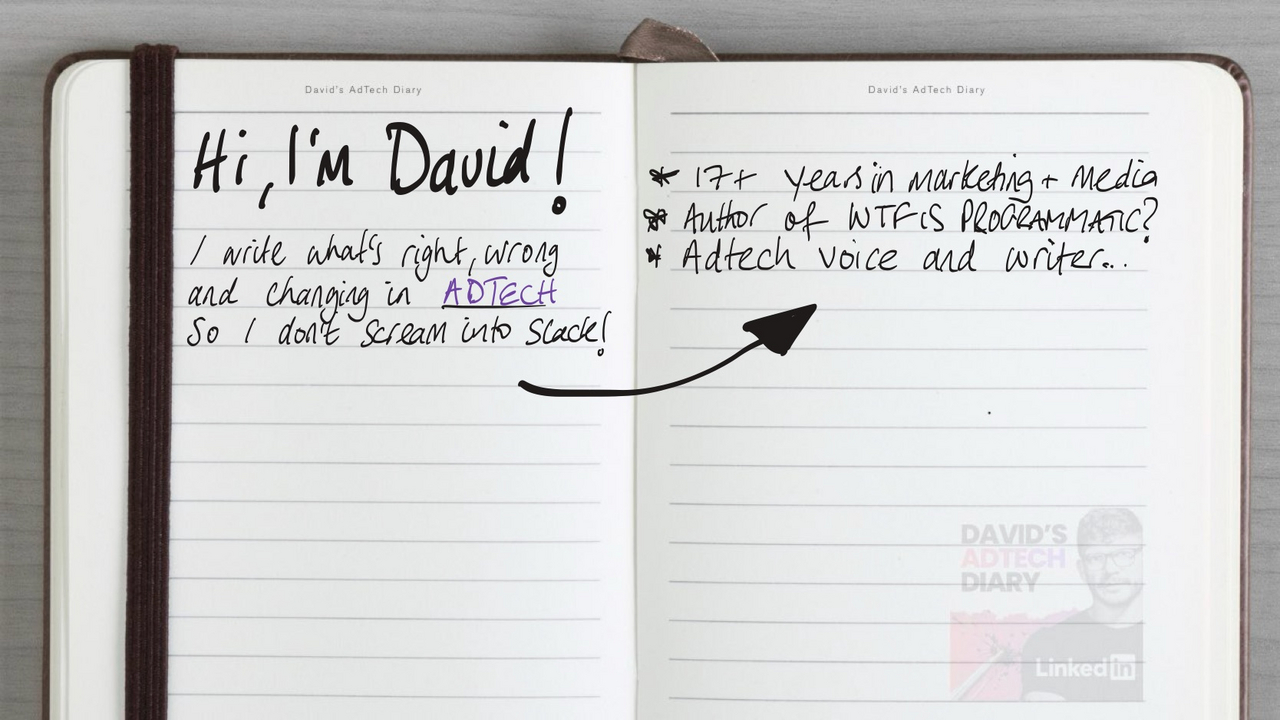 David's AdTech Diary
Hi, I'm David!
I write what's right, wrong
and changing in ADTECH
So I don't scream into Slack!
David's AdTech Diary
* 17+ years in marketing + media
* Author of WTF IS PROGRAMMATIC?
* Adtech voice and writer...
DAVID'S
ADTECH
DIARY
LinkedIn